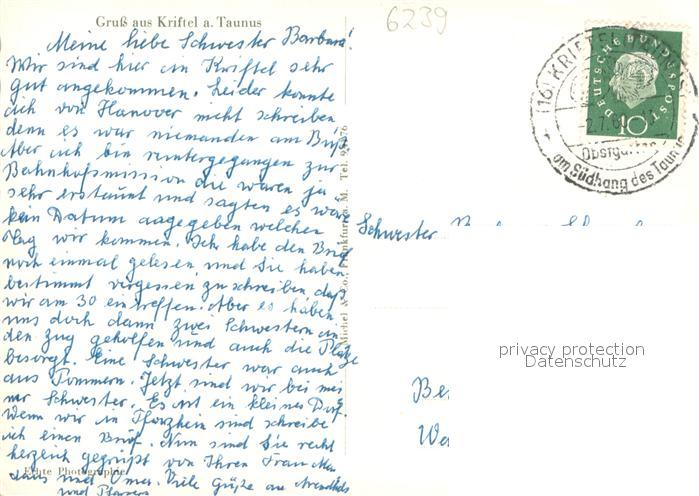 Gruß aus Kriftel a. Taunus
6239
Meine liebe Schwester Barbara!
Wir sind hier in Kriftel sehr
gut angekommen. Leider konnte
ich von Hanover nicht schreiben
denn es war niemanden am
Aber ich bin runtergegangen zur
Bahnhofsmission die waren ja
sehr erstaunt und sagten es war
kein Datum angegeben welchen
Tag wir kommen. Ich habe den Brief
noch einmal gelesen, und Sie haben
bestimmt vergessen zu schreiben, daß
wir am 30 eintreffen. Aber es haben
uns doch dann zwei Schwestern in
den Zug geholfen und auch die Plätze
besorgt. Eine Schwester war auch
aus Pommern. Jetzt sind wir bei mei
ner Schwester. Es ist ein kleines Dorf.
Wenn wir in Pforzheim sind schreibe
ich einen Brief. Nun sind Sie recht
herzlich gegrüßt von Ihren Frau
und Omas. Viele Grüße an
und
Echte Photographie
Michel & Co., Frankfurt a. M. Tel.
DEUTSCHE BUNDESPOST
10
(16) KRIFTEL
am Südhang des Taunus
Schwester
privacy protection
Datenschutz
Be